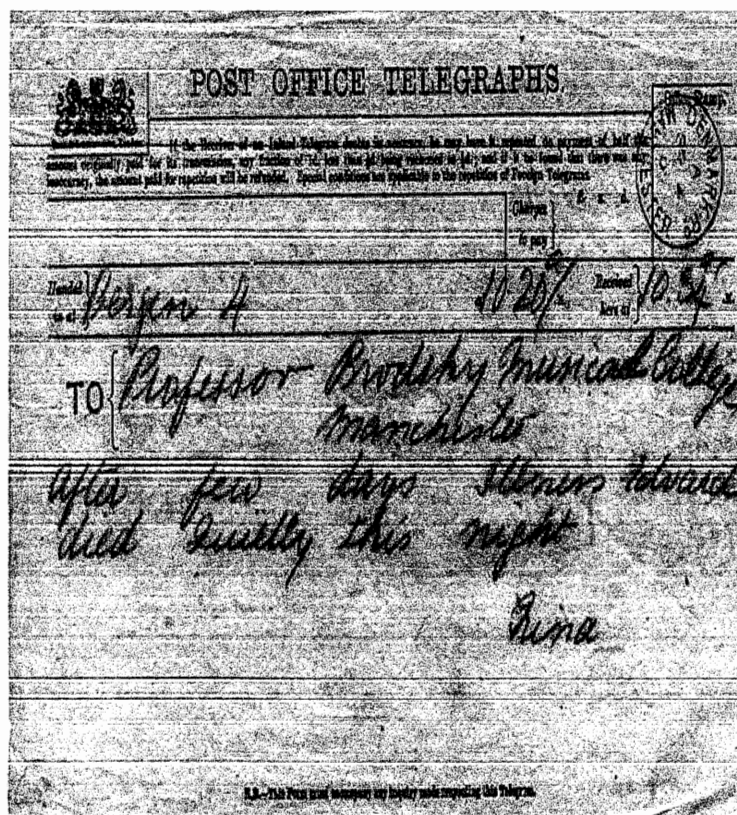 POST OFFICE TELEGRAPHS.
If the Receiver of an Inland Telegram doubts its accuracy, he may have it repeated on payment of half the
amount originally paid for its transmission, any fraction of 1d. less than ½d. being reckoned as ½d.; and if it be found that there was any
inaccuracy, the amount paid for repetition will be refunded. Special conditions are applicable to the repetition of Foreign Telegrams.
Charges to pay £ s. d.
Handed in at Bergen 4 10 20 Received here at 10.
TO Professor Brodsky Musical College
Manchester
After few days Illness Edward
died Quietly this night
Nina
N.B.—This Form must accompany any inquiry made respecting this Telegram.